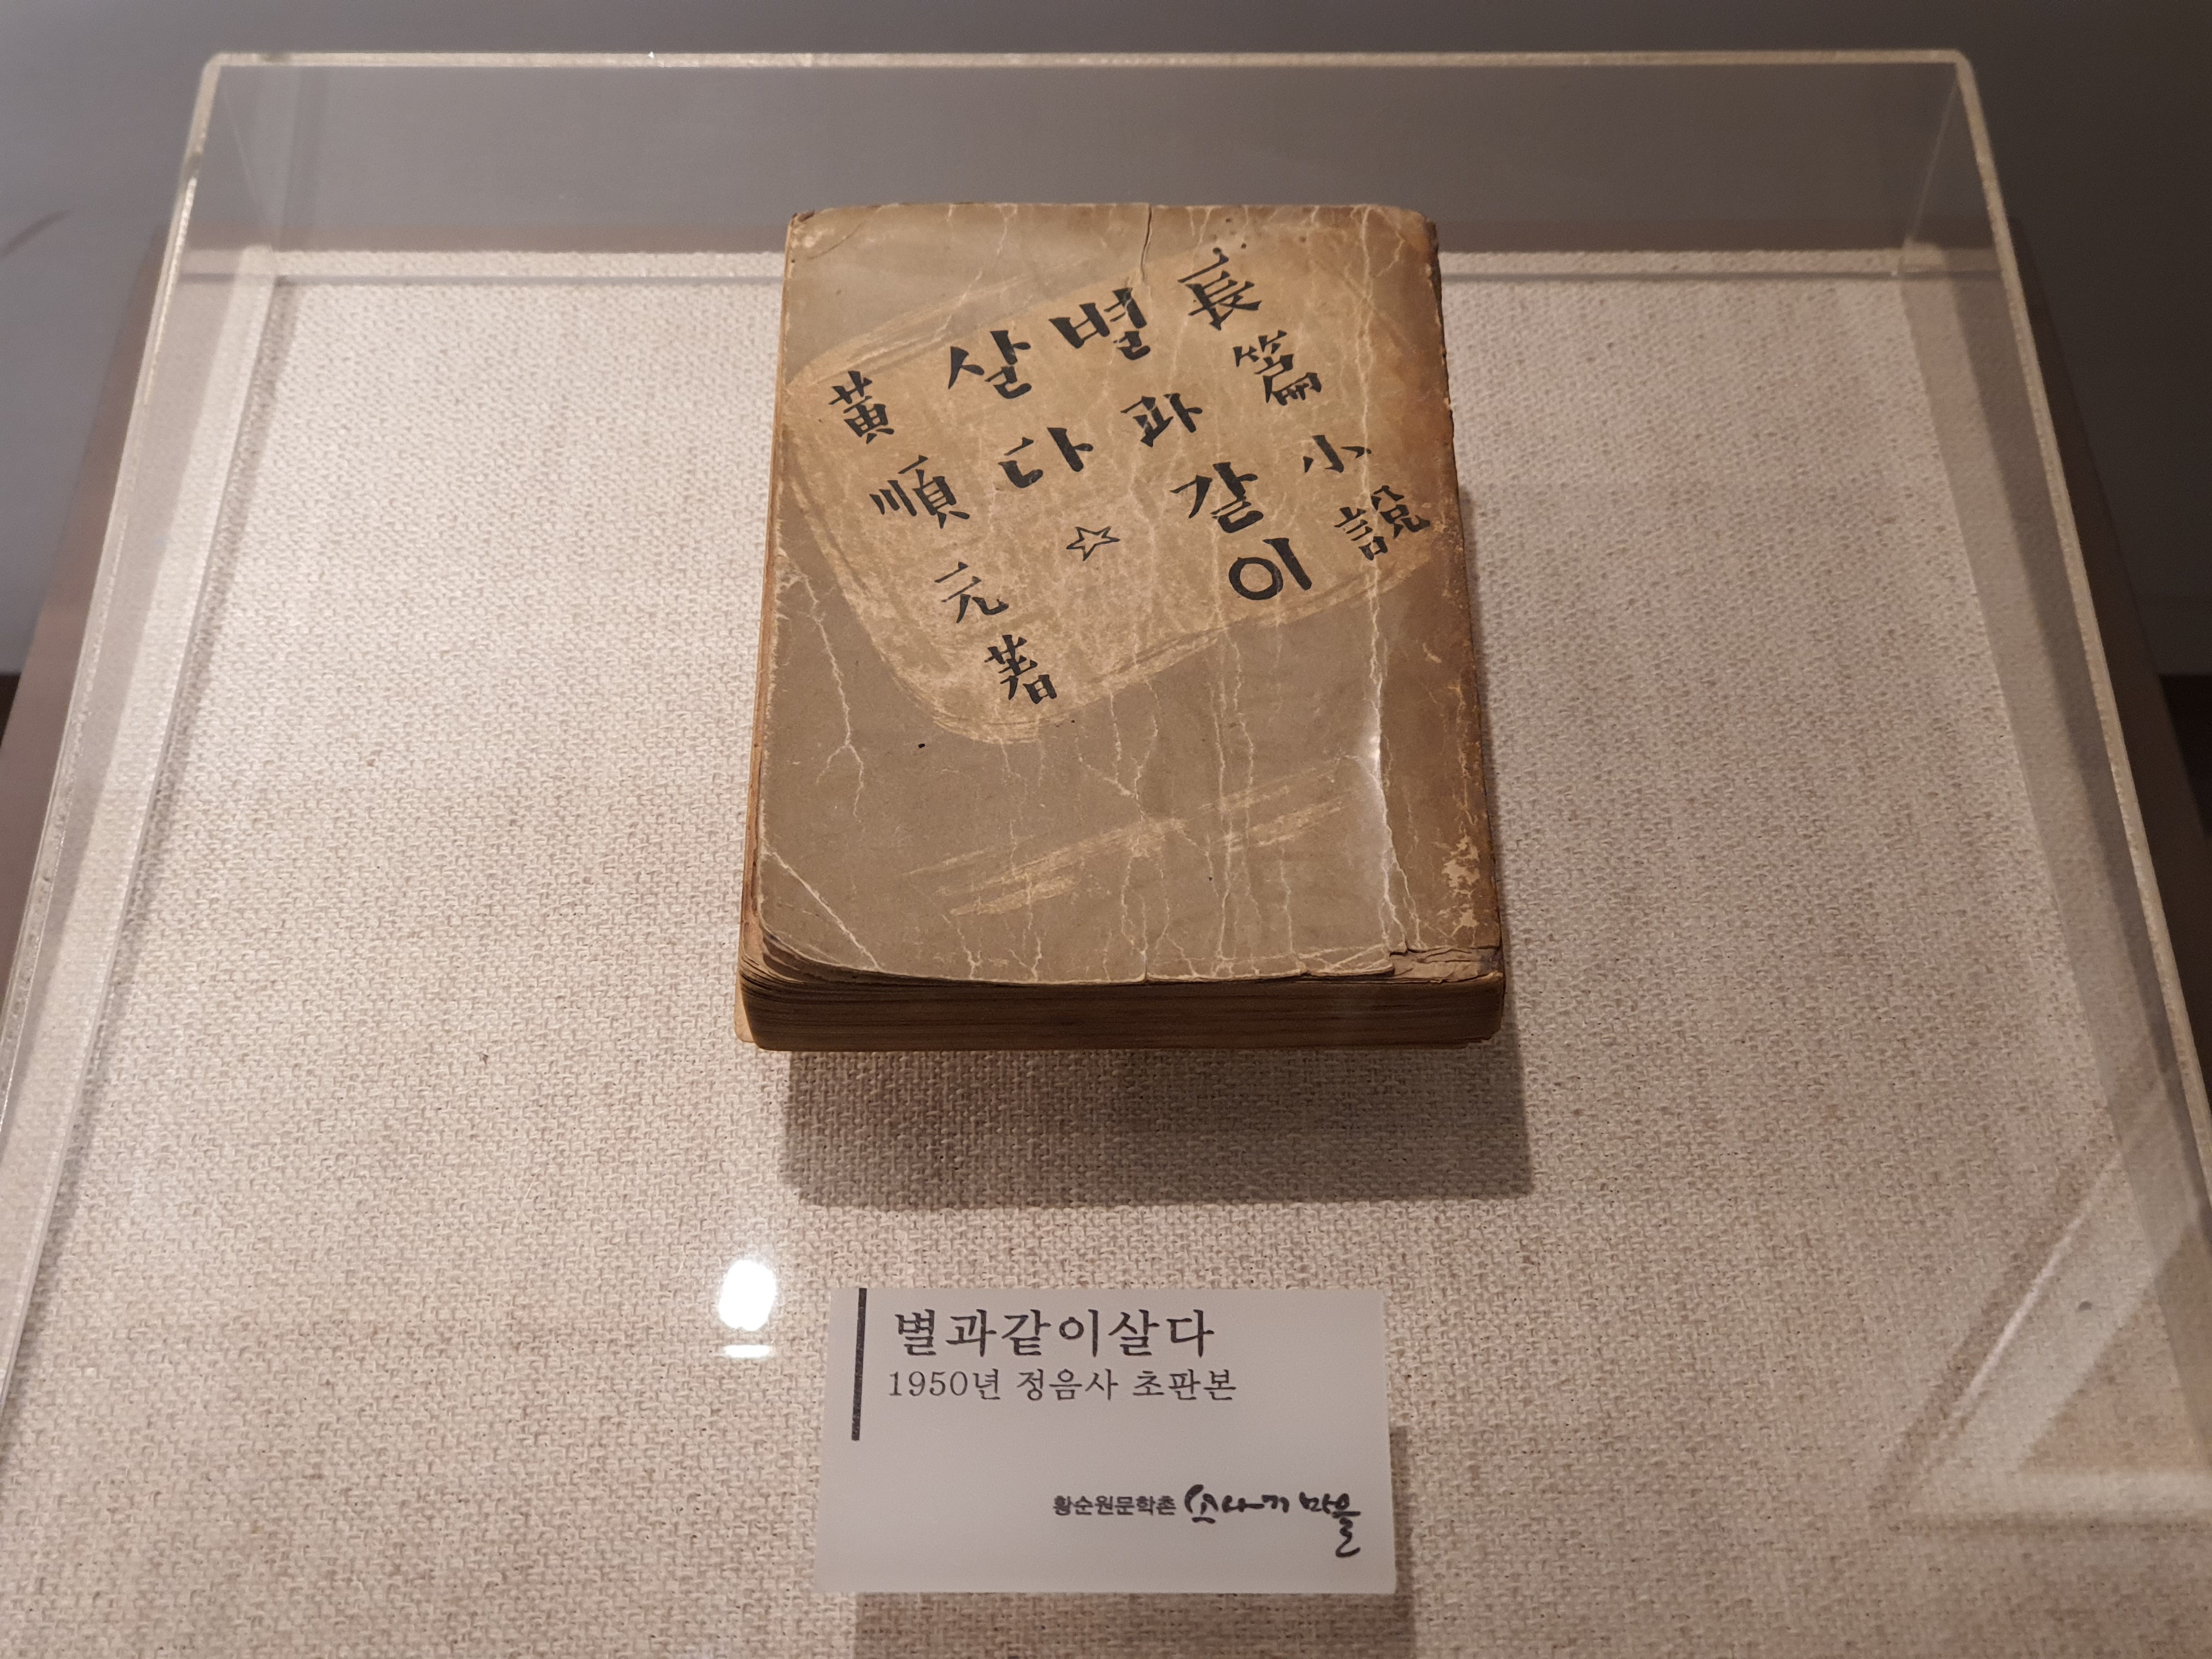 長篇小說
별과같이
살다
☆
黃順元著
별과같이살다
1950년 정음사 초판본
황순원문학촌 소나기마을